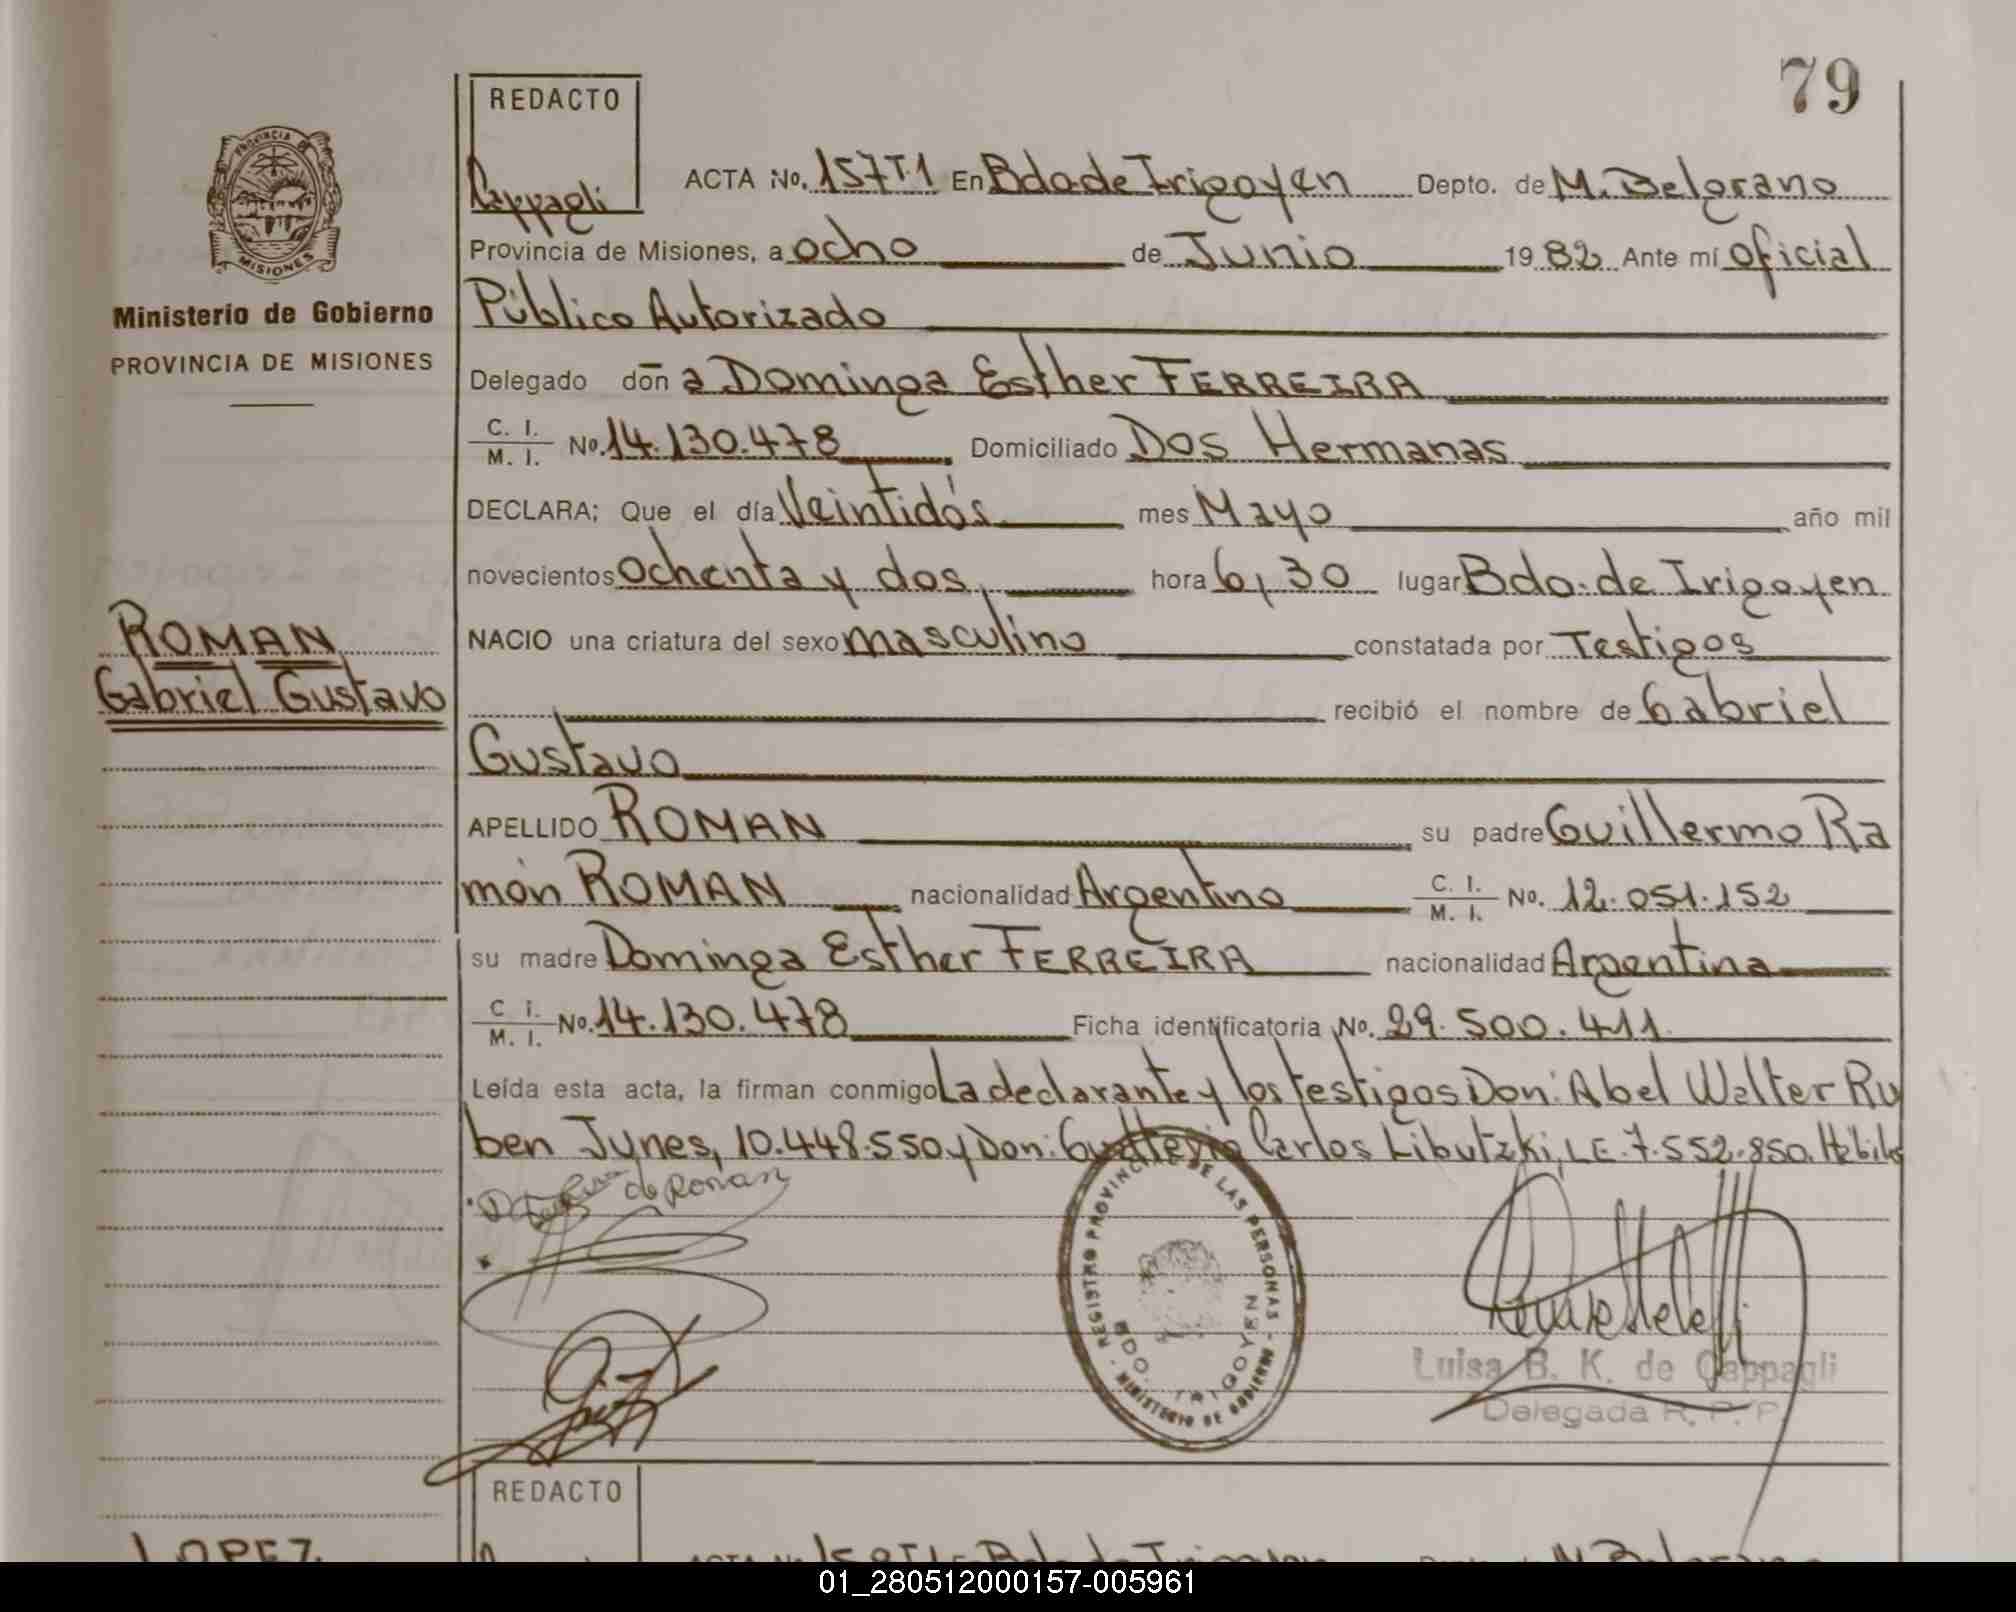 79
REDACTO
Cappagli
ACTA No. 157T.1 En Bdo. de Irigoyen Depto. de M. Belgrano
Provincia de Misiones, a ocho de Junio 1982 Ante mí oficial
Público Autorizado
Delegado don a Dominga Esther FERREIRA
C. I. M. I. No. 14.130.478 Domiciliado Dos Hermanas
DECLARA; Que el día Veintidós mes Mayo año mil
novecientos ochenta y dos, hora 6,30 lugar Bdo. de Irigoyen
NACIO una criatura del sexo masculino constatada por Testigos
recibió el nombre de Gabriel
Gustavo
APELLIDO ROMAN su padre Guillermo Ra
món ROMAN nacionalidad Argentino C. I. M. I. No. 12.051.152
su madre Dominga Esther FERREIRA nacionalidad Argentina
C. I. M. I. No. 14.130.478 Ficha identificatoria No. 29.500.411
Leída esta acta, la firman conmigo La declarante y los testigos Don: Abel Walter Ru
ben Jynes, 10.448.550 y Don: Carlos Libutzki, L.E. 7.552.850.
de Roman
REGISTRO PROVINCIAL DE LAS PERSONAS - MINISTERIO DE GOBIERNO
BDO. IRIGOYEN
Luisa B. K. de Cappagli
Delegada R. P. P.
PROVINCIA DE
MISIONES
Ministerio de Gobierno
PROVINCIA DE MISIONES
ROMAN
Gabriel Gustavo
REDACTO
LOPEZ
01_280512000157-005961